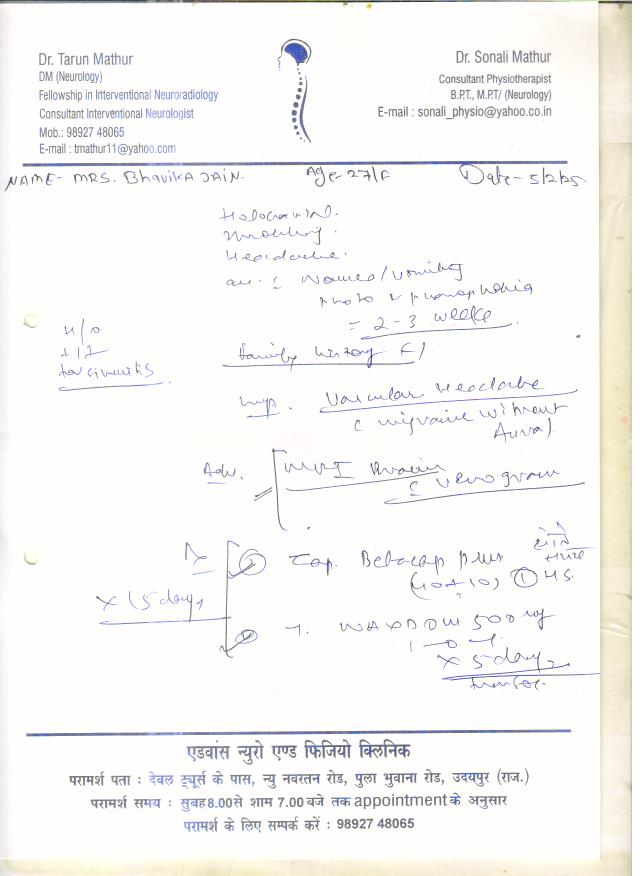 Dr. Tarun Mathur
DM (Neurology)
Fellowship in Interventional Neuroradiology
Consultant Interventional Neurologist
Mob.: 98927 48065
E-mail : tmathur11@yahoo.com
Dr. Sonali Mathur
Consultant Physiotherapist
B.P.T., M.P.T/ (Neurology)
E-mail : sonali_physio@yahoo.co.in
NAME- MRS. Bhavika JAIN. Age- 27/F Date- 5/2/25
Holocranial.
throbbing.
Headache.
Nausea/vomiting
photo & phonophobia
= 2-3 weeks
H/O
family history
Imp. Vascular Headache
(migraine without
Aura)
Adv. MRI Brain
c venogram
Rx
x 15 days
Cap. Betacap plus
(40+10) 1 HS.
सोते
समय
T. NAXDOM 500 mg
1-0-1
x 5 days
एडवांस न्युरो एण्ड फिजियो क्लिनिक
परामर्श पता : देवल ट्यूर्स के पास, न्यु नवरतन रोड, पुला भुवाना रोड, उदयपुर (राज.)
परामर्श समय : सुबह 8.00 से शाम 7.00 बजे तक appointment के अनुसार
परामर्श के लिए सम्पर्क करें : 98927 48065